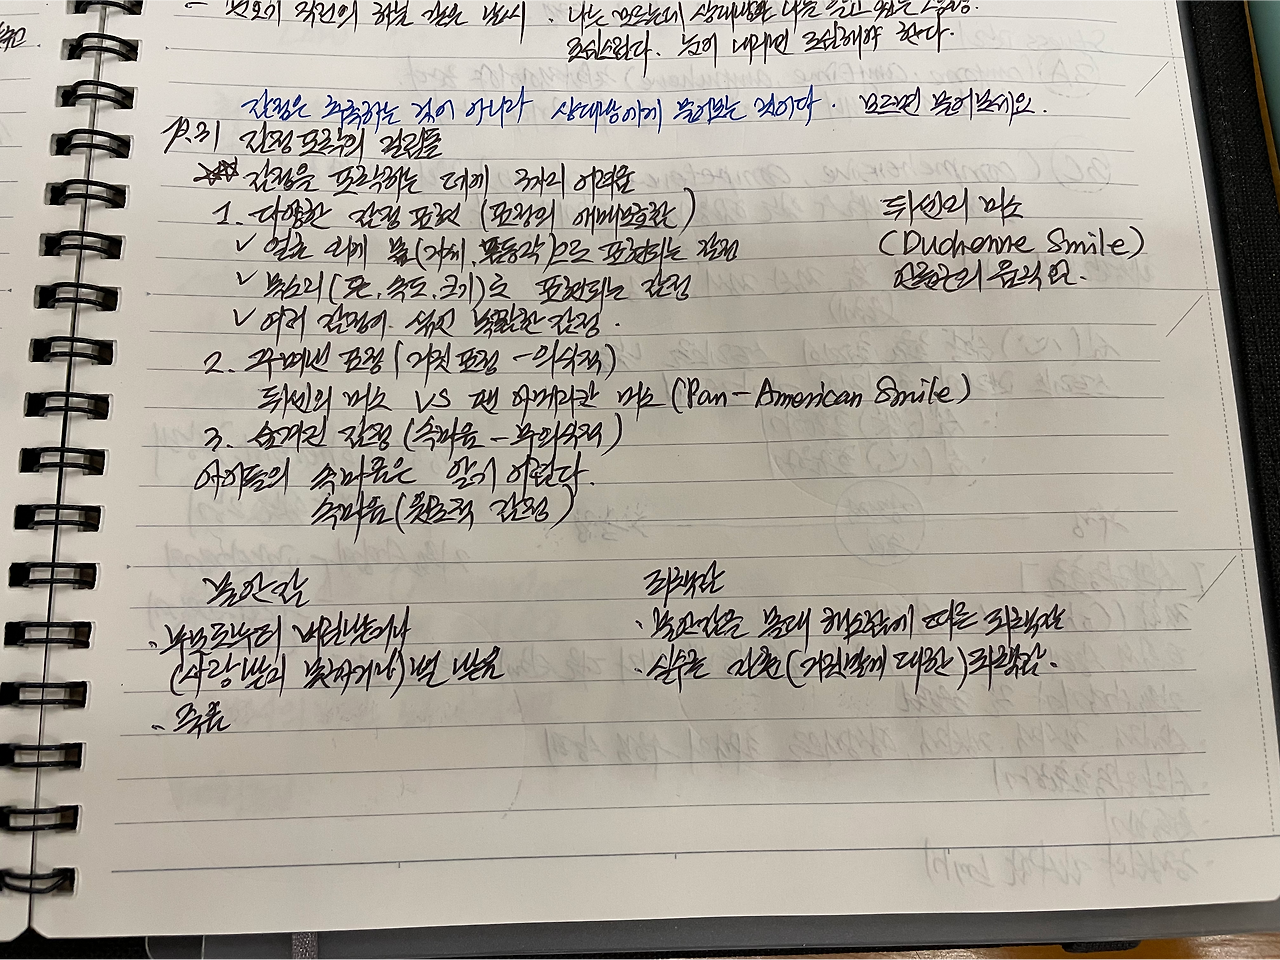 조심스럽다. 눈이 내리면 조심해야 한다.
감정은 추측하는 것이 아니라 상대방에게 물어보는 것이다. 모르면 물어보세요.
P.31 감정 포착의 걸림돌
감정을 포착하는 데에 3가지 어려움
1. 다양한 감정 표현 (표정의 애매모호함)
✓ 얼굴 외에 몸(자세, 행동각)으로 표현되는 감정
✓ 목소리(톤, 속도, 크기)로 표현되는 감정
✓ 여러 감정이 섞인 복잡한 감정.
뒤센의 미소
(Duchenne Smile)
안륜근의 움직임.
2. 꾸며낸 표정 (거짓 표정 - 의식적)
뒤센의 미소 VS 팬 아메리칸 미소 (Pan-American Smile)
3. 숨겨진 감정 (속마음 - 무의식적)
아이들의 속마음은 알기 어렵다.
속마음 (원초적 감정)
불안감
· 부모로부터 버림받거나
(사랑받지 못하거나) 벌 받음
· 죽음
죄책감
· 불안감을 몰래 해소함에 따른 죄책감
· 실수를 감춘 (거짓말에 대한) 죄책감.